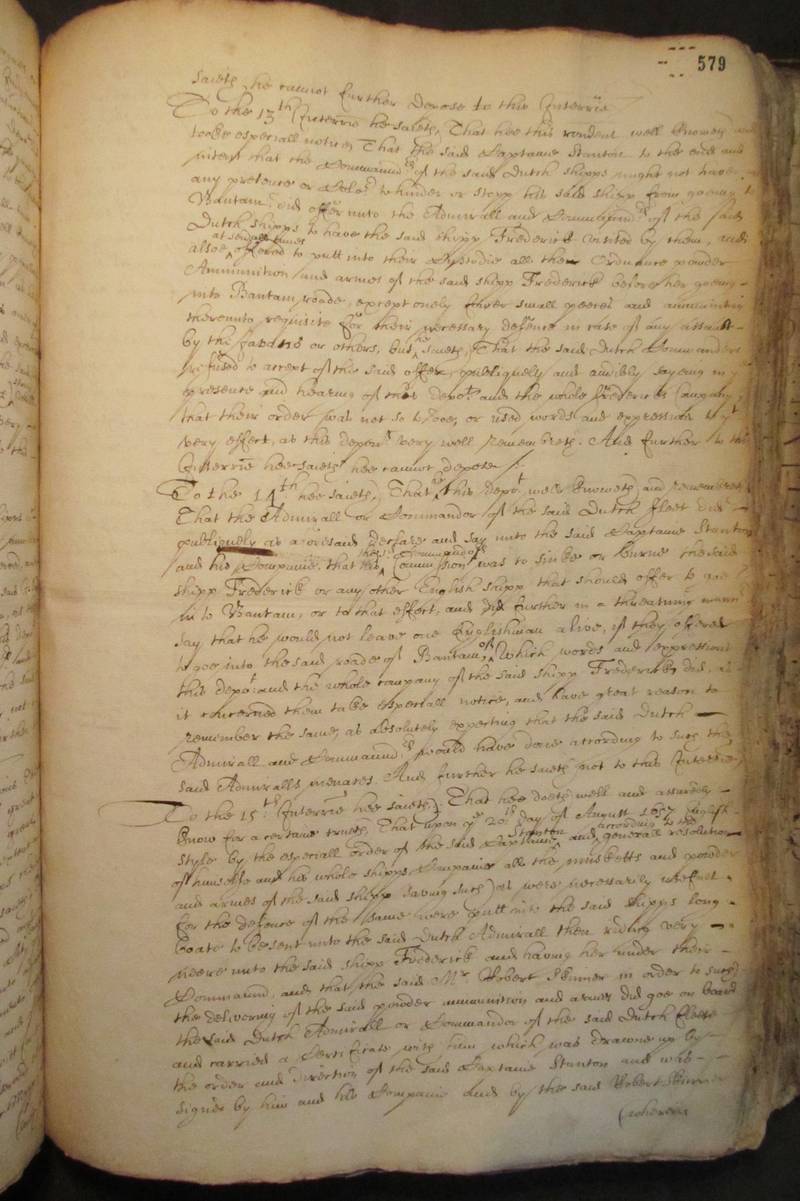 579
saieth he cannot further depose to this Interrie
To the 13th Interrie hee saieth, That hee this rendent well knoweth and
tooke especiall notice That the said Captaine Stanton to the end and
intent that the Commaunders of the said Dutch shipps might not have
any pretence or Colour to hinder or stopp his said shipp from goeing to
Bantam did offer unto the Admirall and Commaunders of the said
Dutch shipps to have the said shipp Frederick visited by them, and
at severall times
alsoe offered to putt into their Custodie all their Ordnance powder
Ammunition and armes of the said shipp Frederick before her goeing
into Bantam roade, except onely three small peeces and ammunition
thereunto requisite for their necessary defence in case of any assault
by the Javans or others, but hee saieth, That the said Dutch Commanders
refused to accept of the said offer, publiquely and audibly sayeing in the
presence and hearing of this depot and the whole Fredericks Company,
that their order was not so to doe, or used words and expressions to yt
very effect, as this depont very well remembreth. And further to this
Interrie hee saieth hee cannot depose /.
To the 14th hee saieth, That hee this depot well knoweth and remembreth
That the Admirall or Commandor of the said Dutch fleet did
publiquely as aforesaid declare and say unto the said Captaine Stanton
and his Companie that his Commission was to sinke or burne the said
shipp Frederick or any other English shipp that should offer to goe
in to Bantam, or to that effect, and did further in a threatning manner
say that he would not leave one Englishman alive, if they offered
to goe into the said roade of Bantam, of which words and expressions
this depot and the whole company of the said shipp Frederick, did, as
it concerned them take especiall notice, and have great reason to
remember the same, as absolutely expecting that the said Dutch
Admirall and Commaunders would have done according to such the
said Admiralls menaces. And further he saieth not to this Interrie
To the 15th Interrie hee saieth, That hee doeth well and assuredly
know for a certaine trueth, That upon ye 20th day of August 1657 English
style by the especiall order of the said Captaine Stanton and according to the generall resolution
of himselfe and his whole shipps Companie all the musketts and powder
and armes of the said shipp (saving such) as were necessarily usefull
for the defence of the same were putt into the said shipps long
boate to be sent unto the said Dutch Admirall then riding very
neere unto the said shipp Frederick and having her under their
Command, and that the said Mr Robert Skinner in order to such
the delivering of the said powder ammunition and armes did goe on board
the said Dutch Admirall or Commandor of the said Dutch Fleete
and carried a Certificate with him which was drawne up by
the order and direction of the said Captaine Stanton and was
signed by him and his Companie and by the said Robert Skinner
(wherein